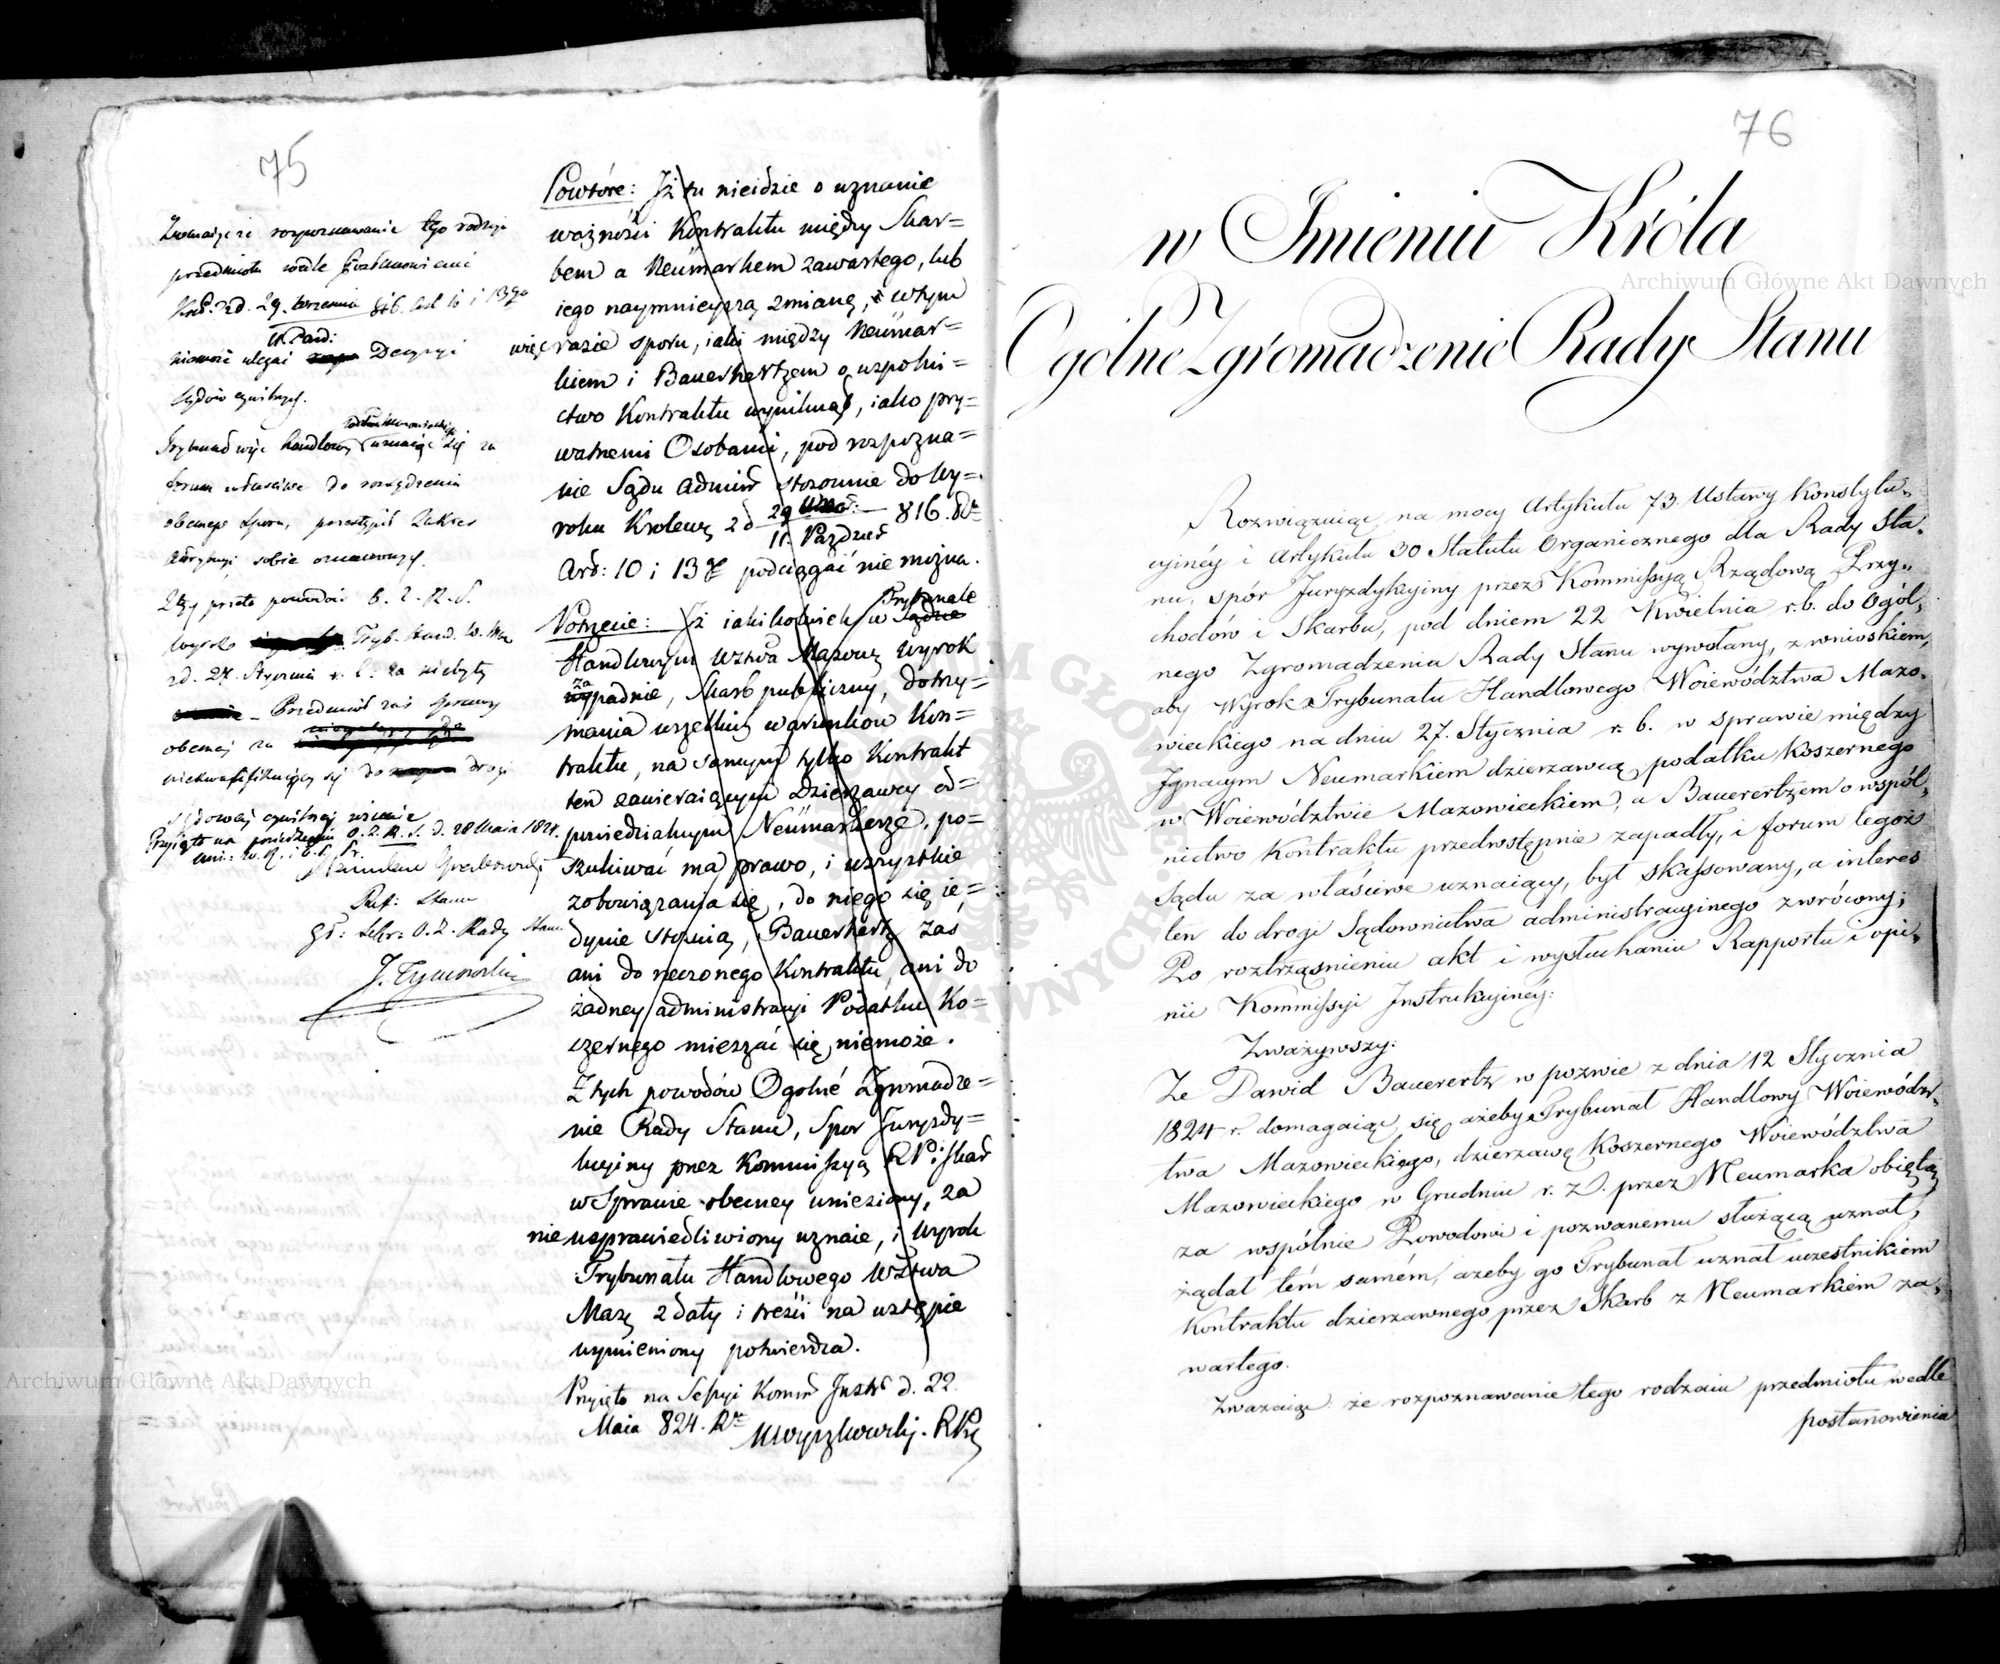 75
Zważając że rozpoznawanie tego rodzaju
przedmiotu wedle Postanowienia
Kró. z d. 29. Września 816. Art 10 i 13go
11. Paźd:
niemoże ulegać Decyzyi
Sądów cywilnych.
Trybunał więc handlowy uznaiąc się za
forum właściwe do rozsądzenia
obecnego sporu, przestąpił zakres
Attrybucyi sobie oznaczonych.
Z tych przeto powodów O. Z. R. S.
wyrok Tryb. Hand. W. Maz
z d. 27. Stycznia r. b. za niebyły
Przedmiot zaś sprawy
obecnej za
niekwalifikuiący się do drogi
sądowej cywilnej uznaie
Przyięto na posiedzeniu O. Z. R. S. d. 28 Maia 1824.
Stanisław Grabowski
Ref: Stanu
gł: Sekr: O. Z. Rady Stanu
J. Tymowski
Powtóre: Iż tu nieidzie o uznanie
ważności Kontraktu między Skar=
bem a Neümarkem zawartego, lub
iego naymnieyszą zmianę, w tym
więc razie sporu, iaki między Neümar=
kiem i Bauerhertzem o wspolni=
ctwo Kontraktu wyniknął, iako pry=
watnemi Osobami, pod rozpozna=
nie Sądu Admin stosownie do Wy=
roku Krolews z d 29 Wrześ: 816. Rku
11. Paźdźier
Art: 10 i 13 podciągać nie można.
Potrzecie: Iż iakikolwiek w Sądzie
Trybunale
Handlowym Wztwa Mazow: wyrok
zapadnie, Skarb publiczny, dotrzy=
mania wszelkich warunkow Kon=
traktu, na samym tylko Kontrakt
ten zawieraiącym Dzierżawcy od=
powiedzialnym Neümarkerze, po=
szukiwać ma prawo, i wszystkie
zobowiązania się, do niego się ie=
dynie stosuią, Bauerhertz zaś
ani do rzeczonego Kontraktu, ani do
żadney administracyi Podatku Ko=
szernego mieszać się niemoże.
Z tych powodów Ogolne Zgromadze=
nie Rady Stanu, Spor Juryzdy=
kcyiny przez Kommissyą R P i Skar
w Sprawie obecney wniesiony, za
nieusprawiedliwiony uznaie, i wyrok
Trybunału Handlowego Wztwa
Maz z daty i treści na wstępie
wymieniony potwierdza.
Przyięto na Sessyi Komm Instr d. 22.
Maia 824. Rku Wyszkowski. R
76
w Imieniu Króla
Ogólne Zgromadzenie Rady Stanu
Rozwiązuiąc na mocy Artykułu 73. Ustawy Konstytu„
cyinéy i Artykułu 30 Statutu Organicznego dla Rady Sta„
nu, spór Juryzdykcyiny przez Kommissyą Rządową Przy„
chodów i Skarbu, pod dniem 22 Kwietnia r. b. do Ogól„
nego Zgromadzenia Rady Stanu wywołany, z wnioskiem,
aby Wyrok Trybunału Handlowego Woiewództwa Mazo„
wieckiego na dniu 27. Stycznia r. b. w sprawie między
Ignacym Neumarkiem dzierżawcą podatku Koszernego
w Woiewództwie Mazowieckiem, a Bauerertzem o wspól„
nictwo Kontraktu przedwstępnie zapadły, i forum tegoż
Sądu za właściwe uznaiący, był skassowany, a interes
ten do drogi Sądownictwa administracyinego zwrócony;
Po roztrząśnieniu akt i wysłuchaniu Rapportu i opi„
nii Kommissyi Instrukcyinéy:
Zważywszy:
Że Dawid Bauerertz w pozwie z dnia 12 Stycznia
1824 r. domagaiąc się ażeby Trybunał Handlowy Woiewódz„
twa Mazowieckiego, dzierżawę Koszernego Woiewództwa
Mazowieckiego w Grudniu r. z. przez Neumarka obiętą
za wspólnie Powodowi i pozwanemu służącą uznał,
żądał tém samém, ażeby go Trybunał uznał uczestnikiem
Kontraktu dzierżawnego przez Skarb z Neumarkiem za„
wartego.
Zważaiąc że rozpoznawanie tego rodzaiu przedmiotu wedle
postanowienia
Archiwum Główne Akt Dawnych
Archiwum Główne Akt Dawnych